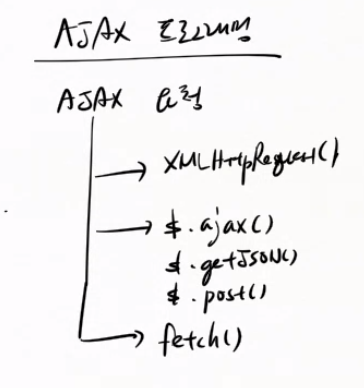 AJAX 프로그래밍
AJAX 요청
XMLHttpRequest()
$.ajax()
$.getJSON()
$.post()
fetch()